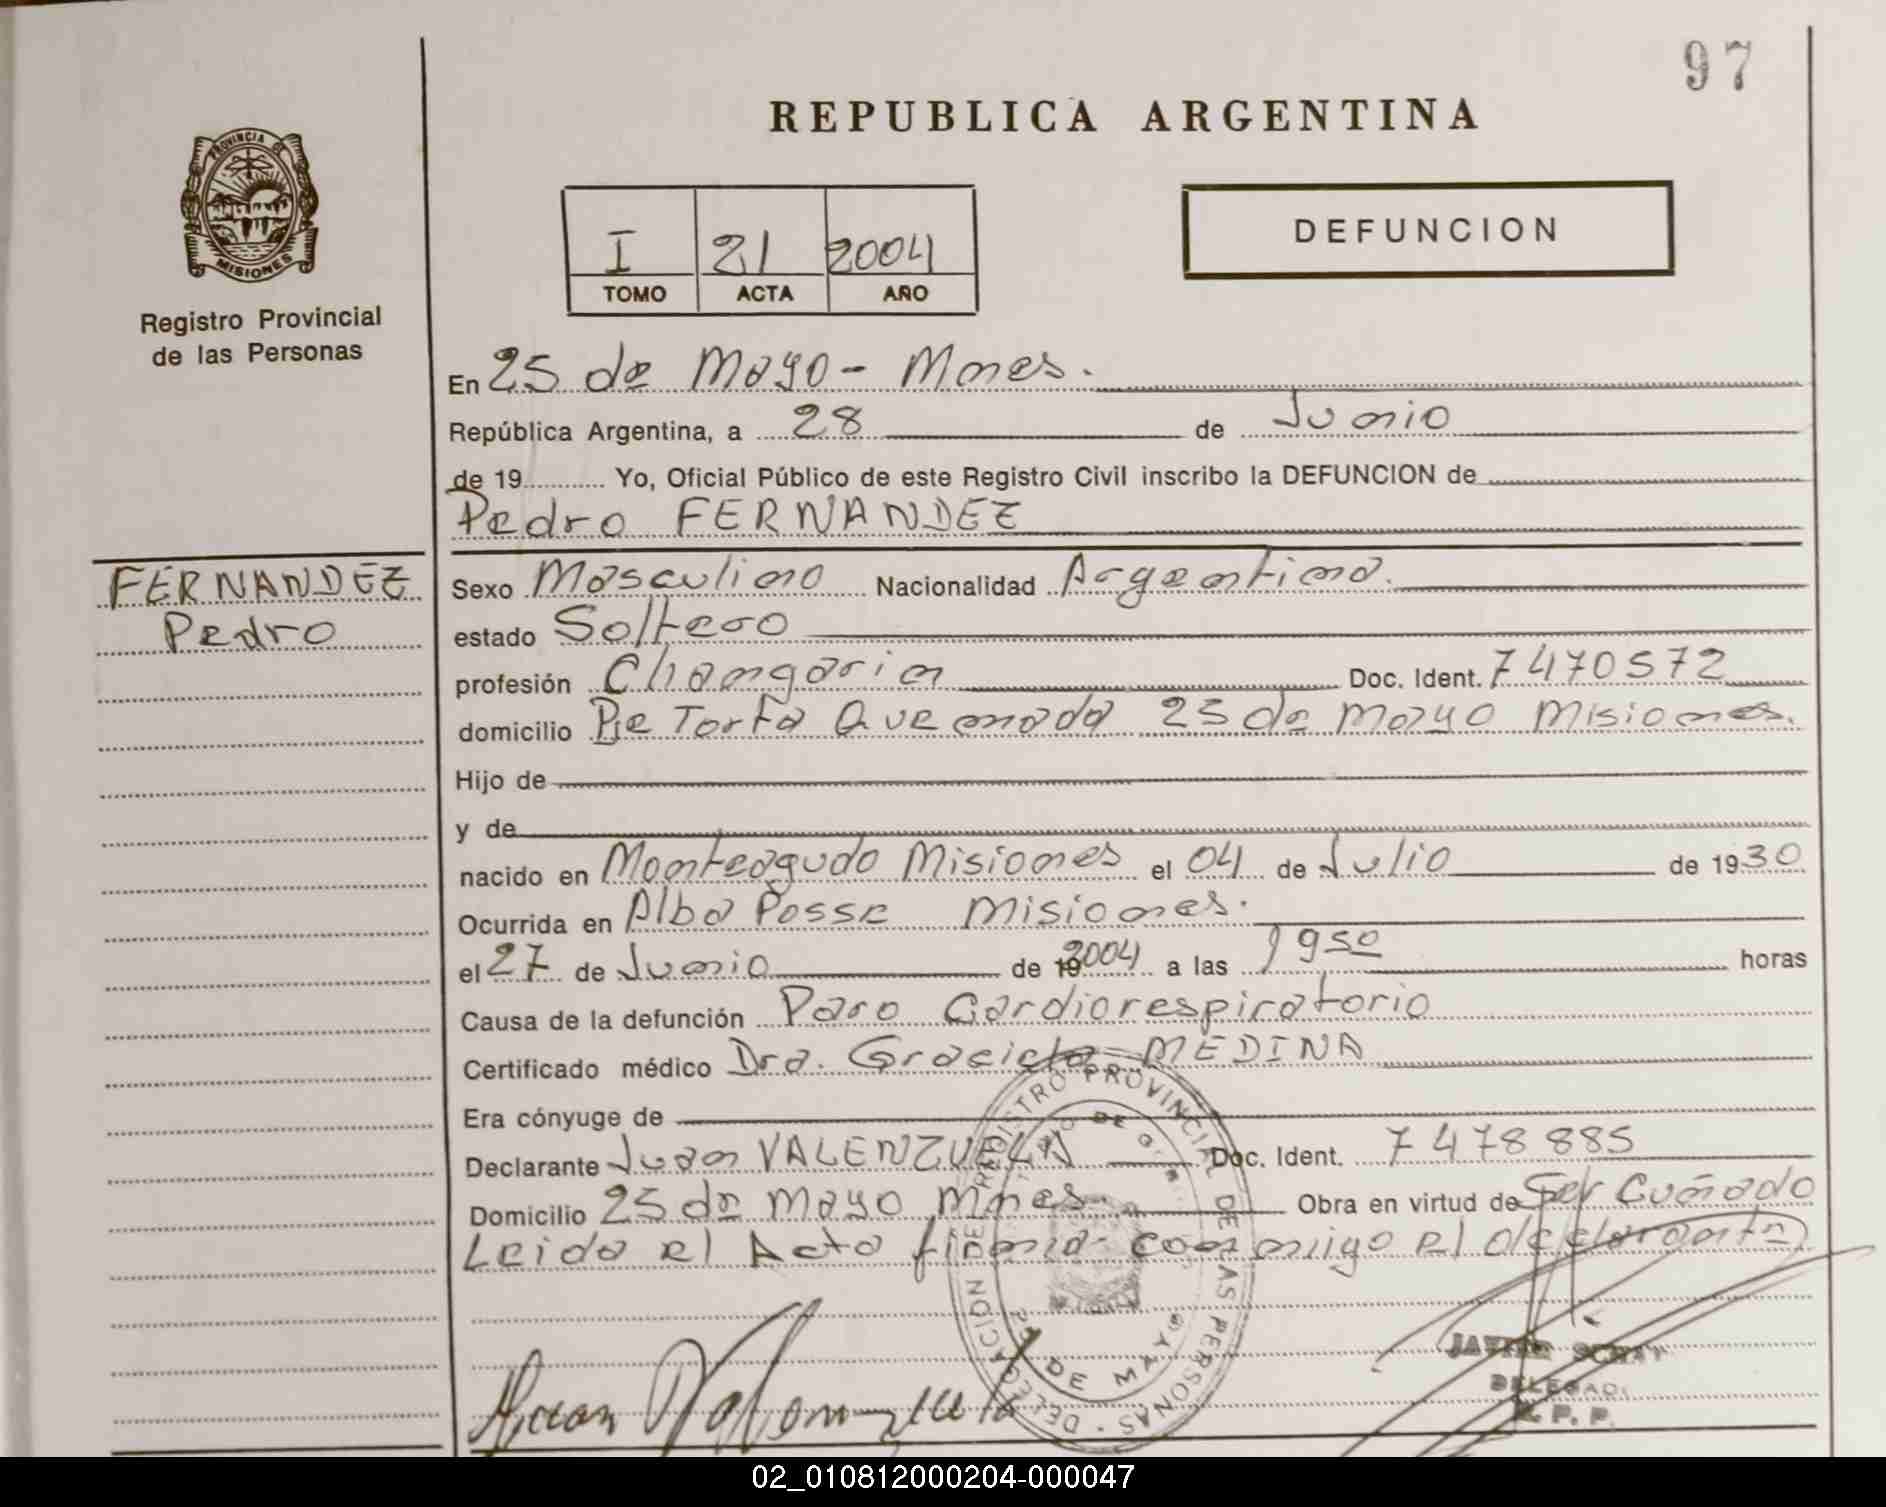 97
REPUBLICA ARGENTINA
PROVINCIA DE
MISIONES
Registro Provincial
de las Personas
I 21 2004
TOMO ACTA AÑO
DEFUNCION
En 25 de Mayo - Mnes.
República Argentina, a 28 de Junio
de 19 Yo, Oficial Público de este Registro Civil inscribo la DEFUNCION de
Pedro FERNANDEZ
FERNANDEZ
Pedro
Sexo Masculino Nacionalidad Argentina.
estado Soltero
profesión Changarin Doc. Ident. 7470572
domicilio Pje Torta Quemada 25 de Mayo Misiones.
Hijo de
y de
nacido en Monteagudo Misiones el 04 de Julio de 1930
Ocurrida en Alba Posse Misiones.
el 27 de Junio de 2004 a las 19 50 horas
Causa de la defunción Paro Cardiorespiratorio
Certificado médico Dra. Graciela MEDINA
Era cónyuge de
Declarante Juan VALENZUELA Doc. Ident. 7478885
Domicilio 25 de Mayo Mnes. Obra en virtud de Ser Cuñado
Leida el Acta firma conmigo el declarante
REGISTRO PROVINCIAL DE LAS PERSONAS · DELEGACION
DE MAYO
Juan Valenzuela
JAVIER
DELEGADO
R. P. P.
02_010812000204-000047